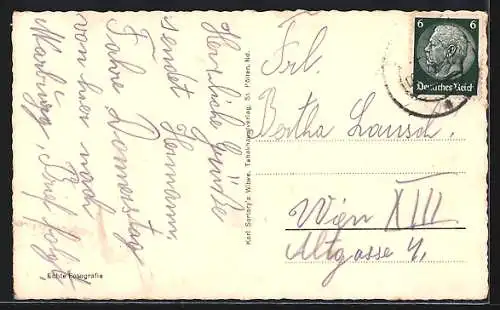 Herzliche Grüße
sendet Hermann
Fahre Donnerstag
von hier nach
Marburg, Brief folgt,
Echte Fotografie
Karl Sartory's Witwe, Tabakhauptverlag, St. Pölten, Nd.
Frl.
Bertha Lausch.
Wien XIII
Altgasse 4,
6 6
Deutsches Reich